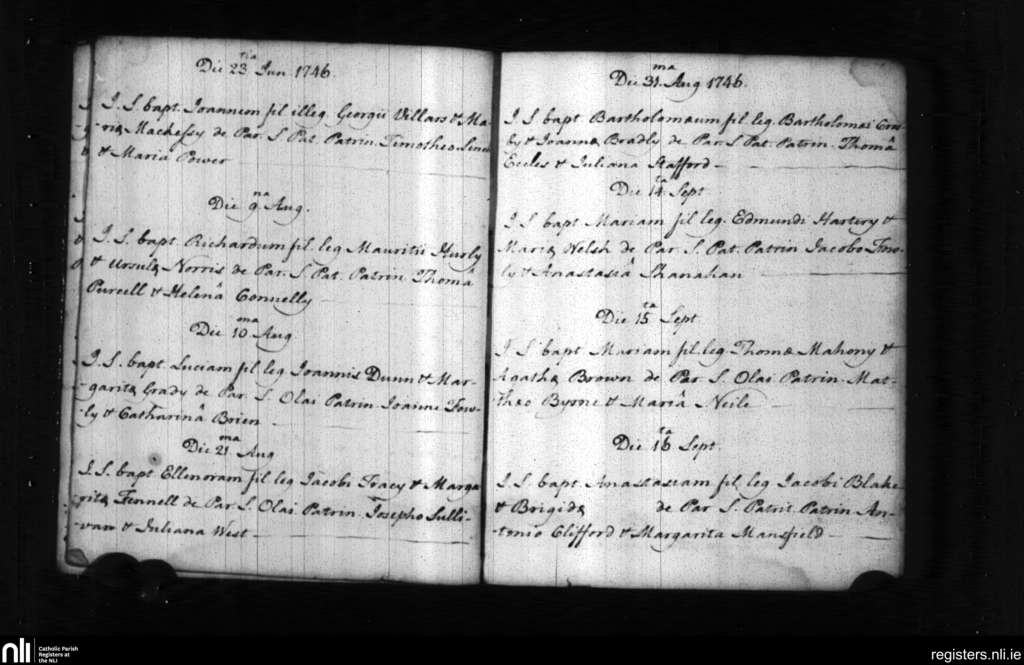 Die 23 tia Jun. 1746.
J. S. bapt. Joannem fil illeg. Georgii Villars & Ma-
-riæ Mackessy de Par. S. Pat. Patrin. Timotheo
& Maria Power
Die 9 na Aug.
J. S. bapt. Richardum fil leg Mauritii Hurly
& Ursulæ Norris de Par. S. Pat. Patrin Thomâ
Purcell & Helenâ Connelly
Die 10 ma Aug.
J. S. bapt. Luciam fil leg Joannis Dunn & Mar-
-garitæ Grady de Par S. Olai Patrin Joanne Fow-
-ly & Catharinâ Brien
Die 21 ma Aug
J. S. bapt Ellenoram fil leg Jacobi Tracy & Marga
-ritæ Fennell de Par S. Olai Patrin. Josepho Sulli-
-van & Juliana West
Die 31 ma Aug 1746.
J S bapt Bartholomæum fil leg. Bartholomæi
& Joannæ Bradly de Par. S Pat. Patrin. Thomâ
Eccles & Juliana Stafford
Die 14 ta Sept
J. S bapt Mariam fil leg. Edmundi Hartery &
Mariæ Welsh de Par. S. Pat. Patrin Jacobo Fow-
ly & Anastasiâ Shanahan
Die 15 ta Sept
J S bapt Mariam fil. leg. Thomæ Mahony &
Agathæ Brown de Par S. Olai Patrin. Mat-
thæo Byrne & Mariâ Neile
Die 16 ta Sept.
J. S. bapt. Anastasiam fil leg Jacobi Blake
& Brigidæ de Par S. Patrit. Patrin. An-
-tonio Clifford & Margarita Mansfield
nli Catholic Parish
Registers at
the NLI
registers.nli.ie